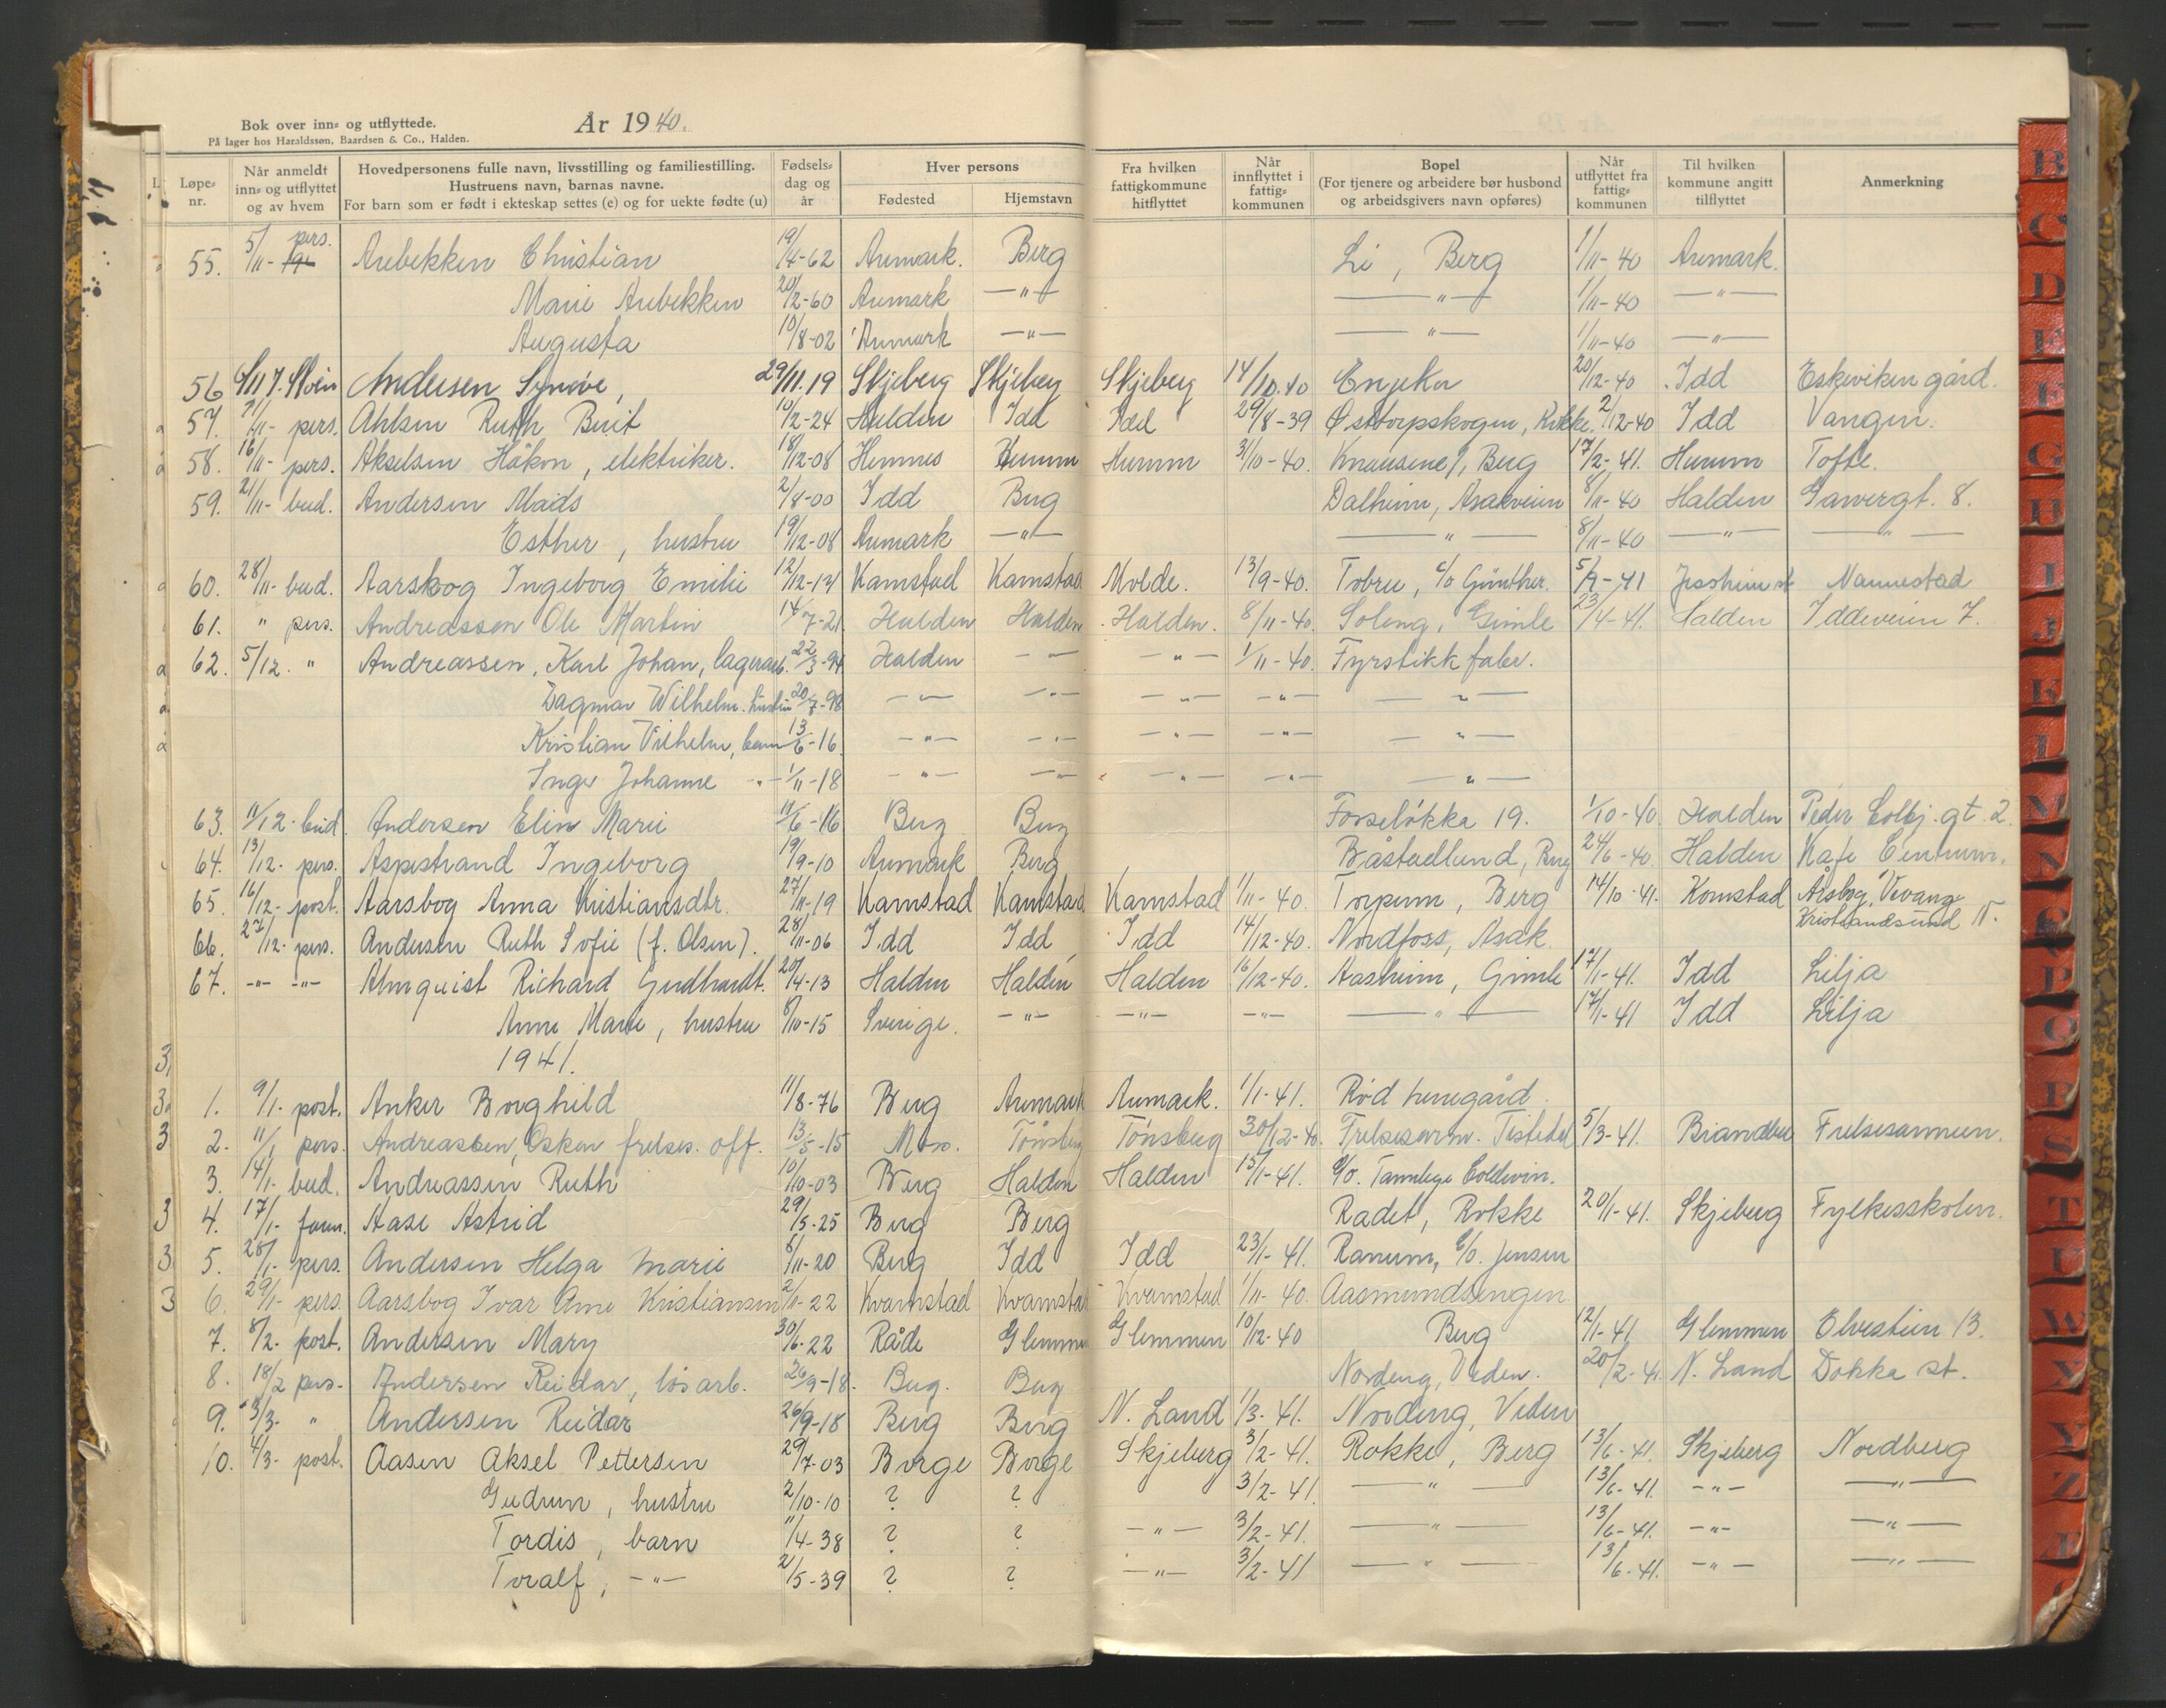 Bok over inn- og utflyttede.
På lager hos Haraldssøn, Baardsen & Co., Halden.
År 1940.
Løpe-nr. Når anmeldt inn- og utflyttet og av hvem Hovedpersonens fulle navn, livsstilling og familiestilling. Hustruens navn, barnas navne. For barn som er født i ekteskap settes (e) og for uekte fødte (u) Fødsels-dag og år Hver persons Fødested Hjemstavn Fra hvilken fattigkommune hitflyttet Når innflyttet i fattig-kommunen Bopel (For tjenere og arbeidere bør husbond og arbeidsgivers navn opføres) Når utflyttet fra fattig-kommunen Til hvilken kommune angitt tilflyttet Anmerkning
55. 5/11- pers. Aubekken Christian 19/4-62 Aremark. Berg Li, Berg 1/11-40 Aremark.
Marie Aubekken 20/2-60 Aremark —"— —"— 1/11-40 —"—
Augusta 10/8-02 Aremark —"— —"— 1/11-40 —"—
56 Andersen Synnøve, 29/11.19 Skjeberg Skjeberg Skjeberg 14/10.40 Engeka 20/12-40 Idd Eskeviken gård.
57. 7/11- pers. Ahlsen Ruth Berit 10/2-24 Halden Idd Idd 29/8-39 Østtorpskogen, Rokke. 2/12-40 Idd Vangen.
58. 16/11- pers. Akselsen Håkon, elektriker. 18/12-08 Hemnes Hurum Hurum 31/10-40. Knausene, Berg 17/2-41. Hurum Tofte.
59. 21/11- bud. Andersen Mads 2/8-00 Idd Berg Dalheim, Asakveien 8/11-40 Halden 8.
Esther, hustru 19/12-08 Aremark —"— —"— 8/11-40 —"— —"—
60. 28/11- bud. Aarskog Ingeborg Emilie 12/12-12 Kamstad Kamstad Molde. 13/9-40. Tobru, c/o Günther. 5/9-41 Jessheim st Nannestad
61. " pers. Andreassen Ole Martin 14/7-21 Halden Halden Halden. 8/11-40. Soleng, Gimle 23/4-41. Halden Iddeveien 7.
62. 5/12. " Andreassen, Karl Johan, lagerarb. 22/3-94 Halden —"— —"— 1/11-40. Fyrstikkfabr.
Dagmar Wilhelm. hustru 20/7-98 —"— —"— —"— —"— —"—
Kristian Vilhelm, barn 13/6-16. —"— —"— —"— —"— —"—
Inger Johanne —"— 1/11-18 —"— —"— —"— —"— —"—
63. 11/12- bud. Andersen Elin Marie 11/6-16 Berg Berg Forseløkka 19. 1/10-40. Halden Peder Colbj. gt. 2.
64. 13/12- pers. Aspestrand Ingeborg 19/9-10 Aremark Berg Båstadlund, Berg 24/6-40. Halden Kafe Centrum.
65. 16/12- post. Aarsbog Anna Kristiansdtr. 27/11-19 Kamstad Kamstad Kamstad 1/11-40. Torpum, Berg 14/10-41. Komstad Årsbog, Vevang
Kristiansund N.
66. 27/12- pers. Andersen Ruth Sofie (f. Olsen). 28/11-06 Idd Idd Idd 14/12-40. Nordfoss, Asak.
67. —"— —"— Almquist Richard Gudhardt. 20/4-13 Halden Halden Halden 16/12-40. Aasheim, Gimle 17/1-41. Idd Lilja
Anne Marie, hustru 8/10-15 Sverige. —"— —"— —"— —"— 17/1-41 Idd Lilja
1941.
1. 9/1- post. Anker Borghild 11/8-76 Berg Aremark Aremark. 1/1-41. Rød herregård.
2. 11/1 pers. Andreassen, Oskar frelses. off. 13/5-15 Moss. Tønsberg Tønsberg 30/12-40. Frelsesarm. Tistedal 5/3-41. Brandbu Frelsesarmeen.
3. 14/1- bud. Andreassen Ruth 10/10-03 Berg Halden Halden 15/1-41. c/o. Tannlege Coldevin.
4. 17/1- fam. Aase Astrid 29/5-25 Berg Berg Radet, Rokke 20/1-41. Skjeberg Fylkesskolen.
5. 28/1- pers. Andersen Helga Marie 8/11-20 Berg Idd Idd 23/1-41. Ranum, c/o. Jensen
6. 29/1- pers. Aarsbog Ivar Arne Kristiansen 2/11-22 Kvamstad Kvamstad Kvamstad 1/11-40. Aasmundsengen
7. 8/2- post. Andersen Mary 30/6-22 Råde Glemmen Glemmen 10/12-40 Berg 12/1-41 Glemmen Elvestien 13.
8. 18/2 pers- Andersen Reidar, løsarb. 26/9-18. Berg. Berg Nordeng, Veden. 20/2-41. N. Land Dokka st.
9. 3/3- " Andersen Reidar 26/9-18 Berg Berg N. Land 1/3-41. Nordeng, Veden
10. 4/3- post. Aasen Aksel Pettersen 29/7-03 Borge Borge Skjeberg 3/2-41. Rokke, Berg 13/6-41. Skjeberg Nordberg
Gudrun, hustru 2/10-10 ? ? 3/2-41. —"— 13/6-41. —"— —"—
Tordis, barn 11/4-38 ? ? —"— 3/2-41. —"— 13/6-41. —"— —"—
Toralf, —"— 2/5-39 ? ? —"— 3/2-41 —"— 13/6-41. —"— —"—